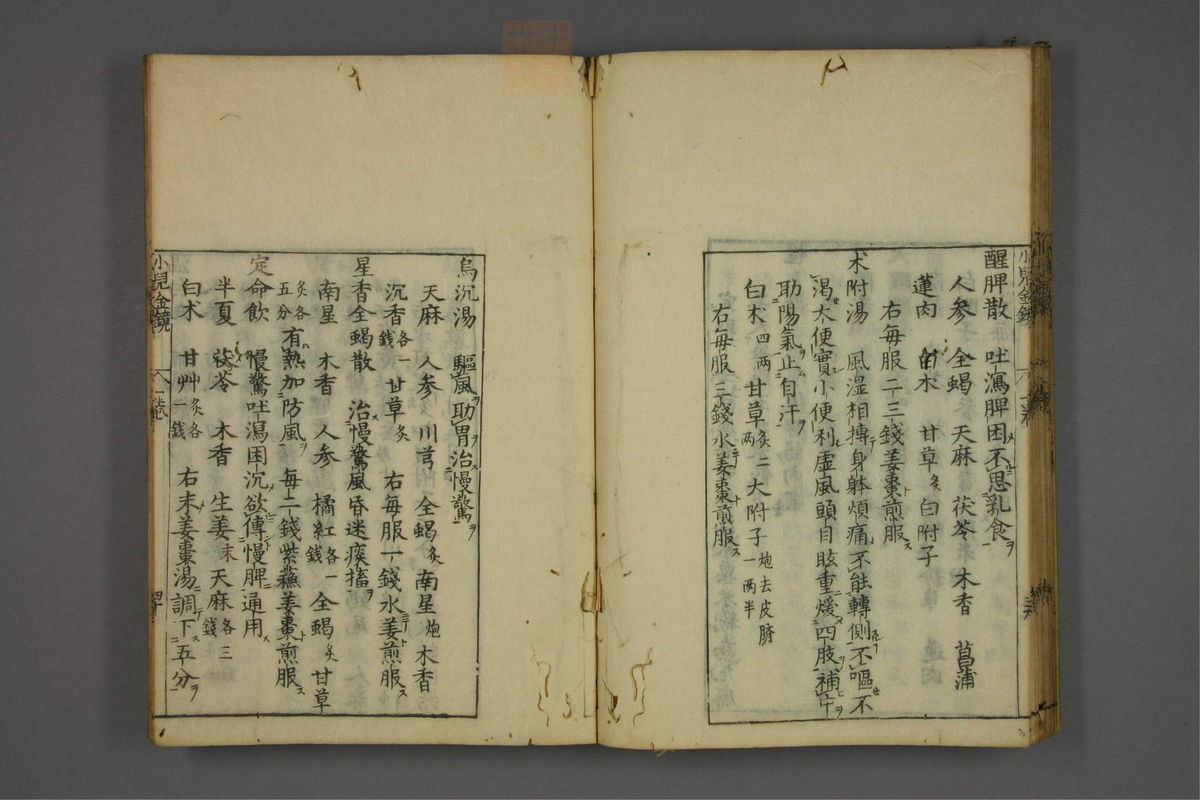 醒脾散　吐瀉脾困不思乳食
人参　全蝎　天麻　茯苓　木香　菖蒲
蓮肉　白朮　甘草炙　白附子
右毎服二三錢姜棗煎服
术附湯　風湿相搏身躰煩痛不能轉側不嘔不
渇大便實小便利虚風頭目眩重煖四肢補
助陽氣止自汗
白术四両　甘草炙二両　大附子炮去皮臍一両半
右毎服三錢水姜棗煎服
烏沉湯　驅風助胃治慢驚
天麻　人参　川芎　全蝎炙　南星炮　木香
沉香各一錢　甘草炙　右毎服一錢水姜煎服
星香全蝎散　治慢驚風昏迷痰搐
南星　木香　人参　橘紅各一錢　全蝎炙　甘草
炙各五分　有熱加防風　毎二錢紫蘓姜棗煎服
定命飲　慢驚吐瀉困沉欲傳慢脾通用
半夏　茯苓　木香　生姜末　天麻各三錢
白术　甘艸炙各一錢　右末姜棗湯調下五分
小兒金鏡
小兒金鏡